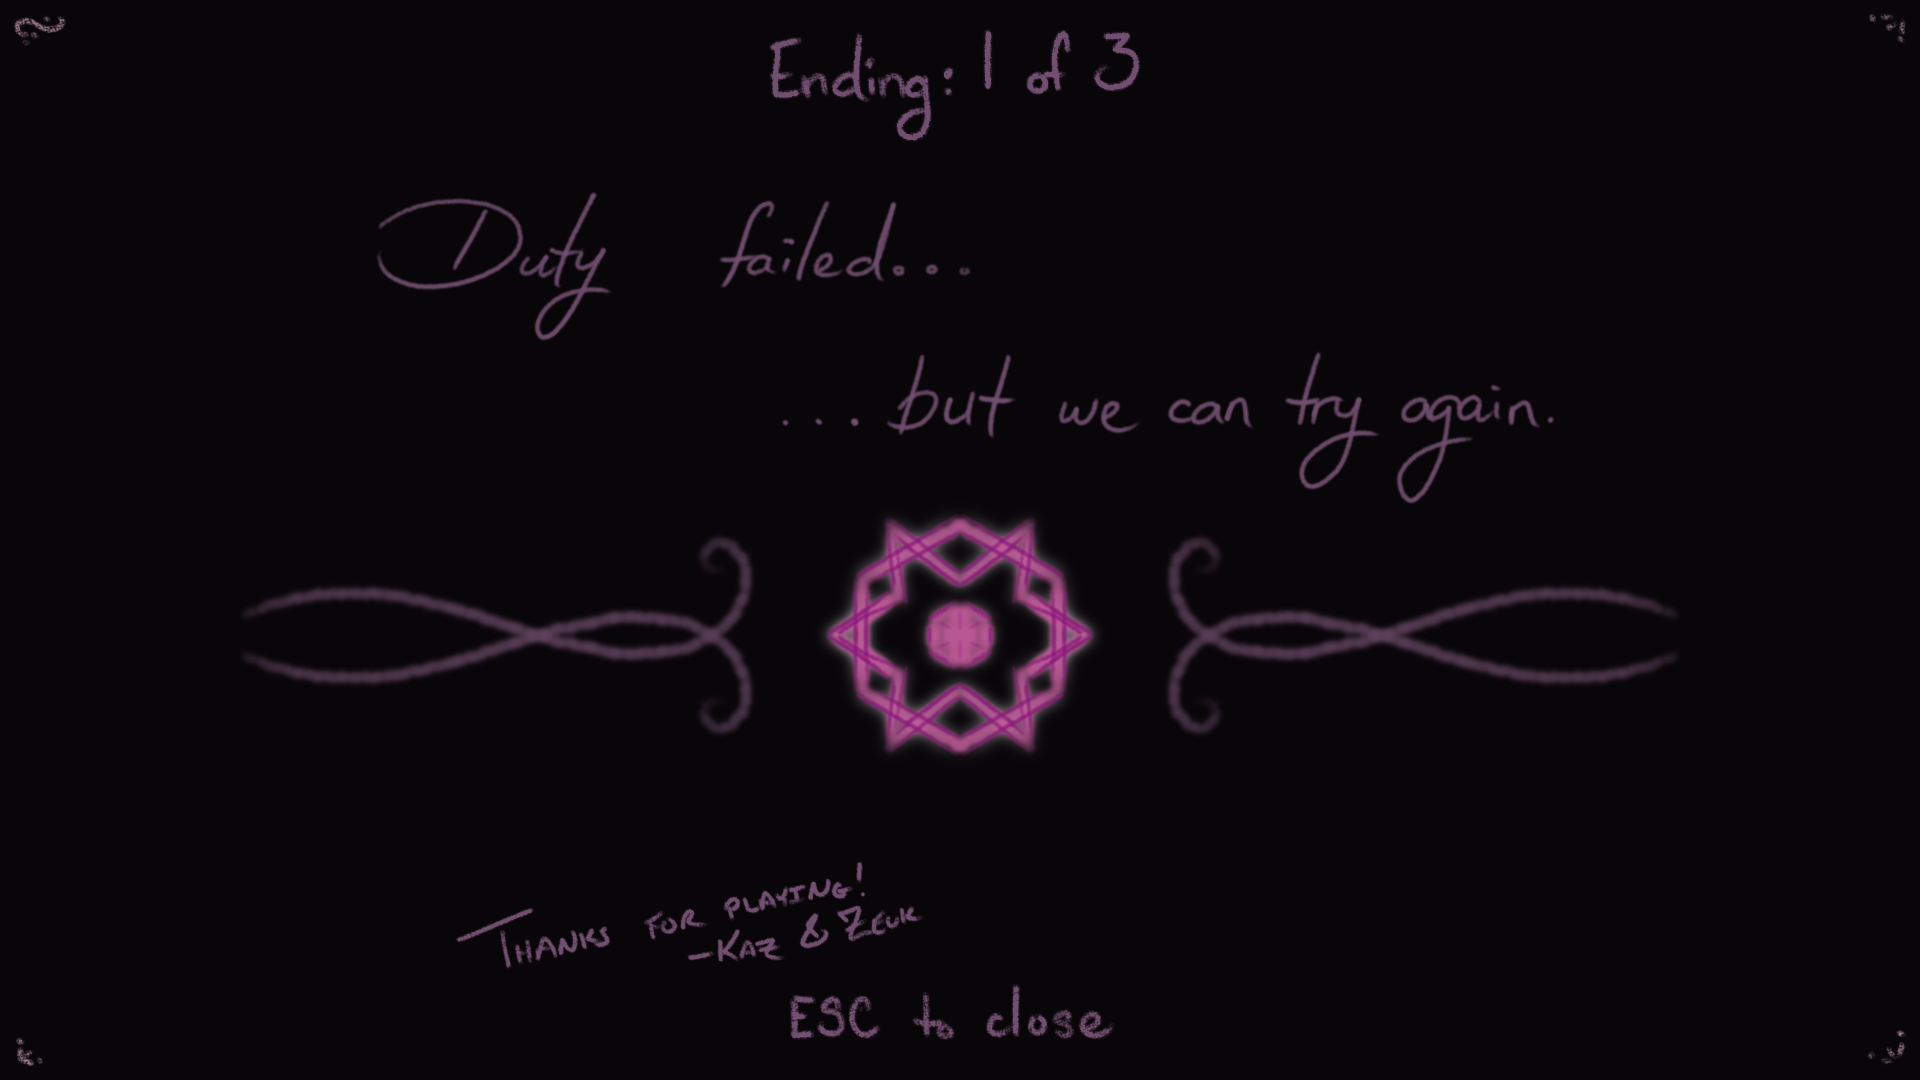 Ending: 1 of 3
Duty failed...
...but we can try again.
THANKS FOR PLAYING!
-KAZ & ZEUK
ESC to close